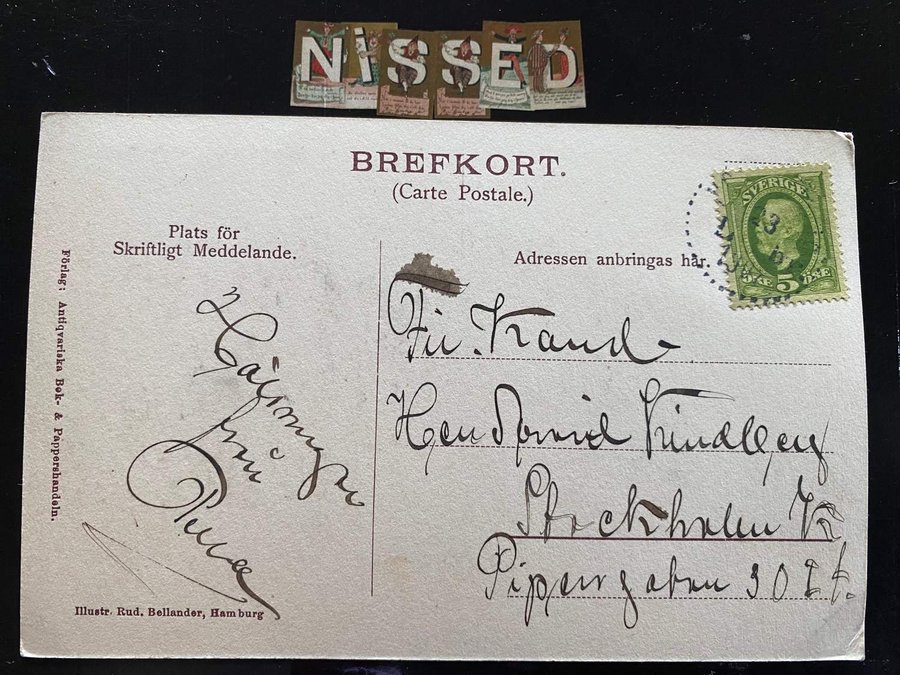 NISSED
BREFKORT.
(Carte Postale.)
Plats för
Skriftligt Meddelande.
Adressen anbringas här.
SVERIGE
5
ÖRE
Förlag: Antiqvariska Bok- & Pappershandeln.
Hälsningar
från
Fil. Kand.
Herr David Lindberg
Stockholm K
Pipersgatan 30
Illustr. Rud. Bellander, Hamburg